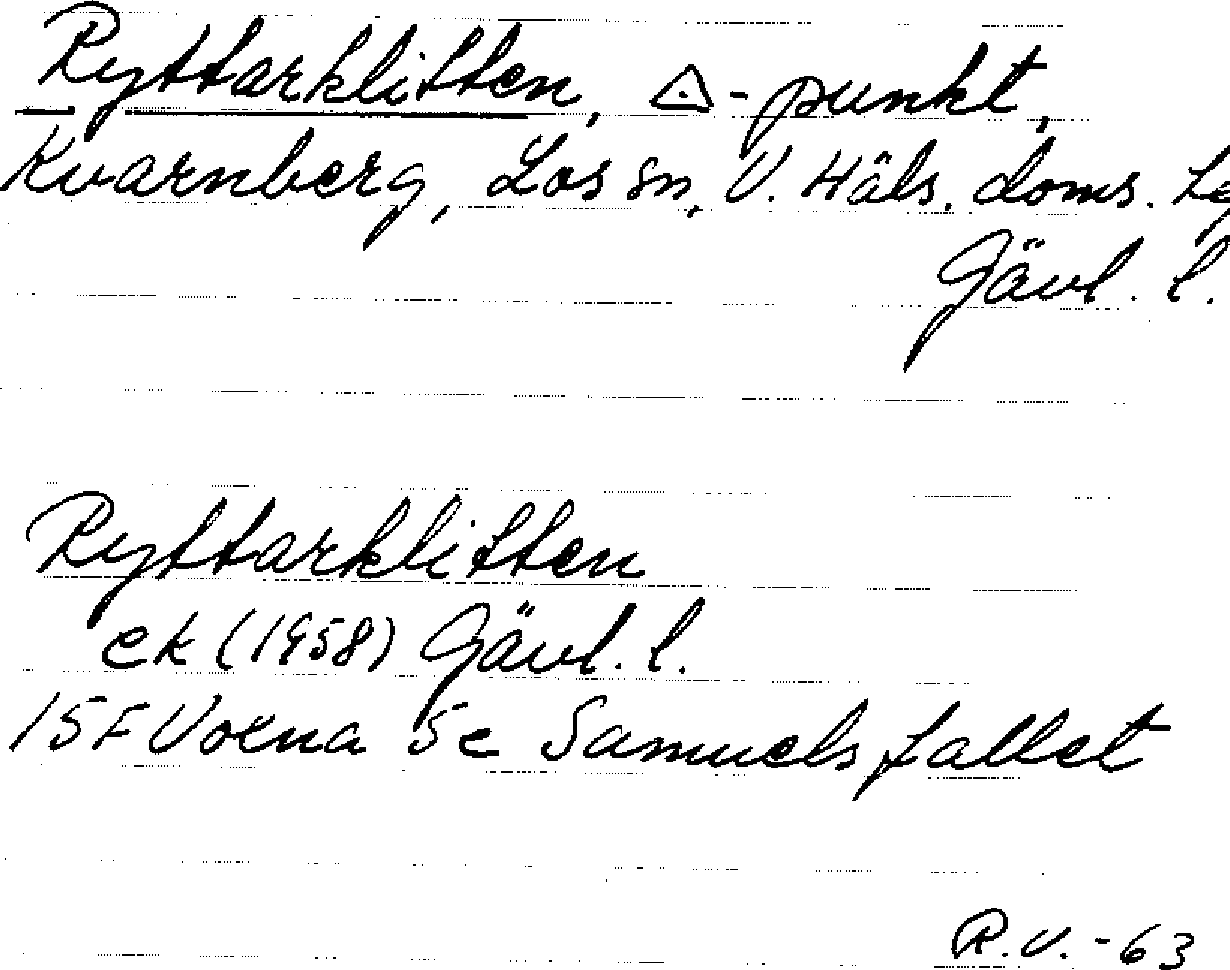 Ryttarklitten, △-punkt,
Kvarnberg, Los sn, V. Häls. doms. Lg
Gävl. l.
Ryttarklitten
ek (1958) Gävl. l.
15F Voxna 5c Samuelsfallet
R.V.-63